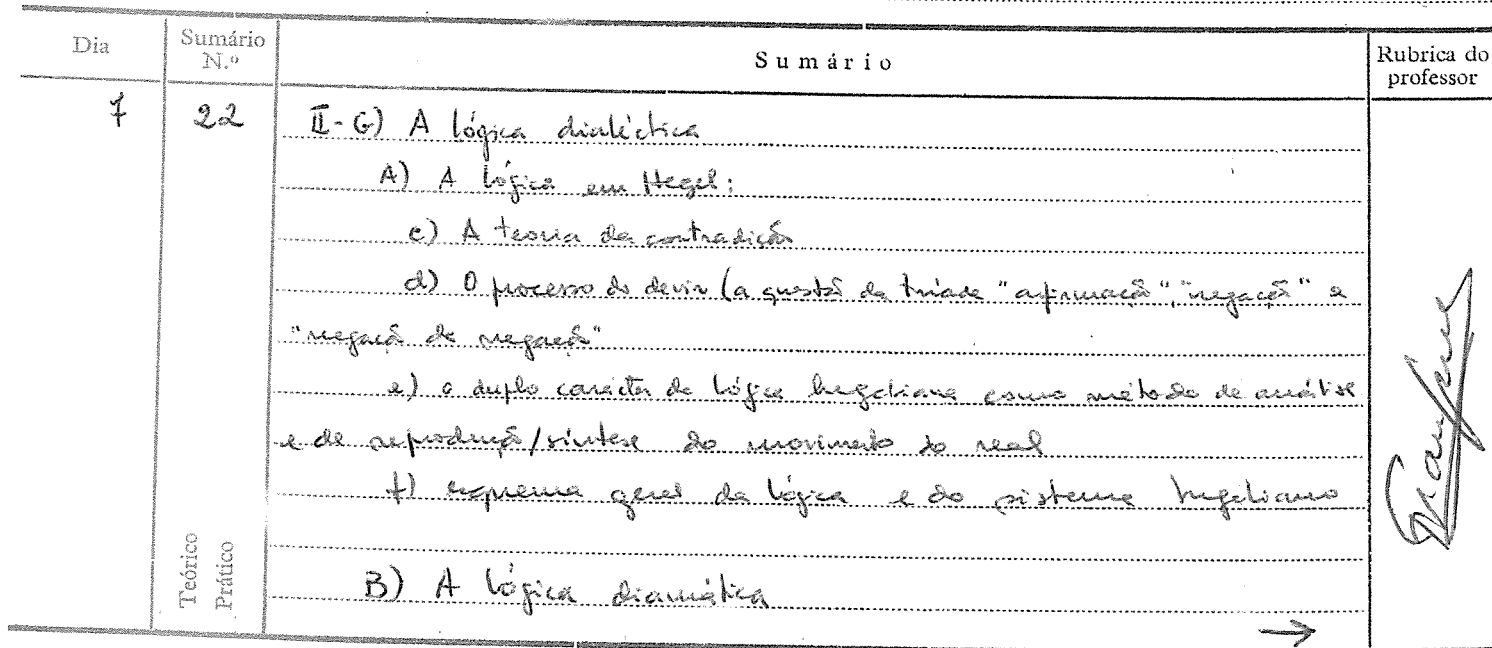 Dia
Sumário N.º
Sumário
Rubrica do professor
7
22
II-G) A lógica dialéctica
A) A lógica em Hegel:
c) A teoria da contradição
d) O processo do devir (a questão da tríade "afirmação", "negação" e
"negação da negação"
e) o duplo carácter da lógica hegeliana como método de análise
e de reprodução/síntese do movimento do real
f) esquema geral da lógica e do sistema hegeliano
Teórico
Prático
B) A lógica diamática
→